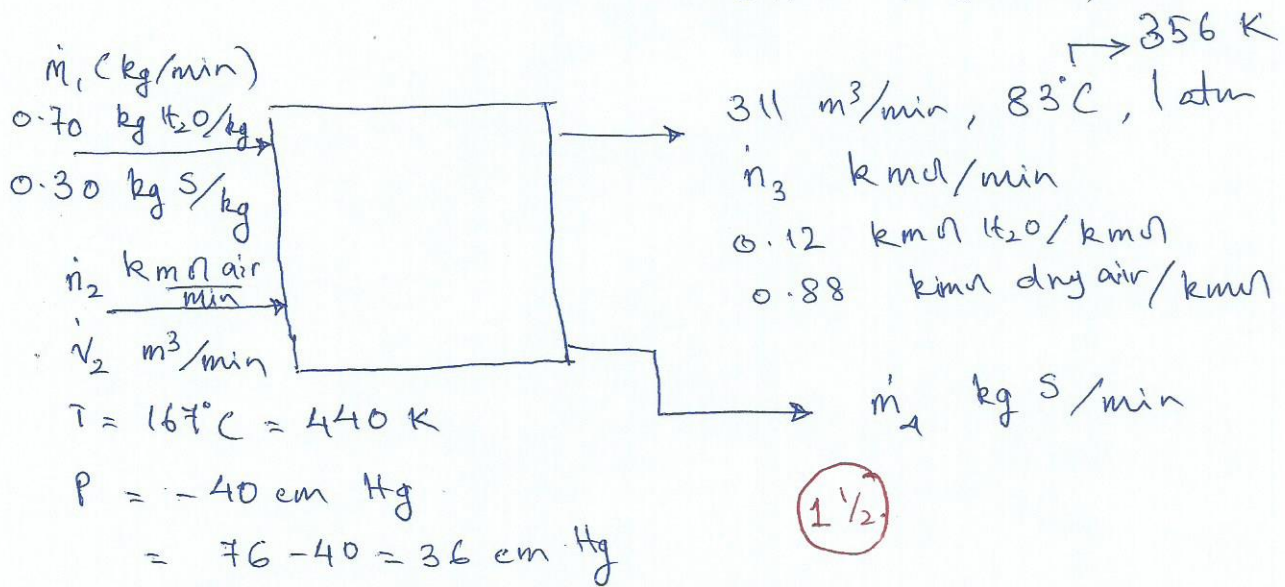 ṁ₁ (kg/min)
0.70 kg H₂O/kg
0.30 kg S/kg
ṅ₂ kmol air/min
V̇₂ m³/min
T = 167°C = 440 K
P = -40 cm Hg
= 76 - 40 = 36 cm Hg
→ 356 K
311 m³/min, 83°C, 1 atm
ṅ₃ kmol/min
0.12 kmol H₂O/kmol
0.88 kmol dry air/kmol
ṁ₄ kg S/min
1 ½